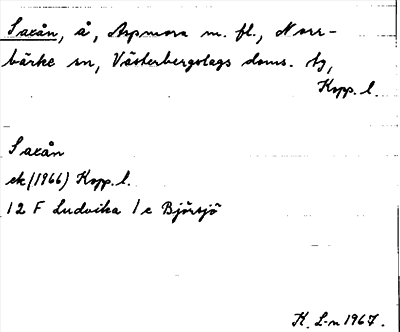 Saxån, å, Aspmora m. fl., Norr-
bärke sn, Västerbergslags doms. tg,
Kopp. l.
Saxån
ek (1966) Kopp. l.
12 F Ludvika 1 e Björsjö
K. L-n 1967.